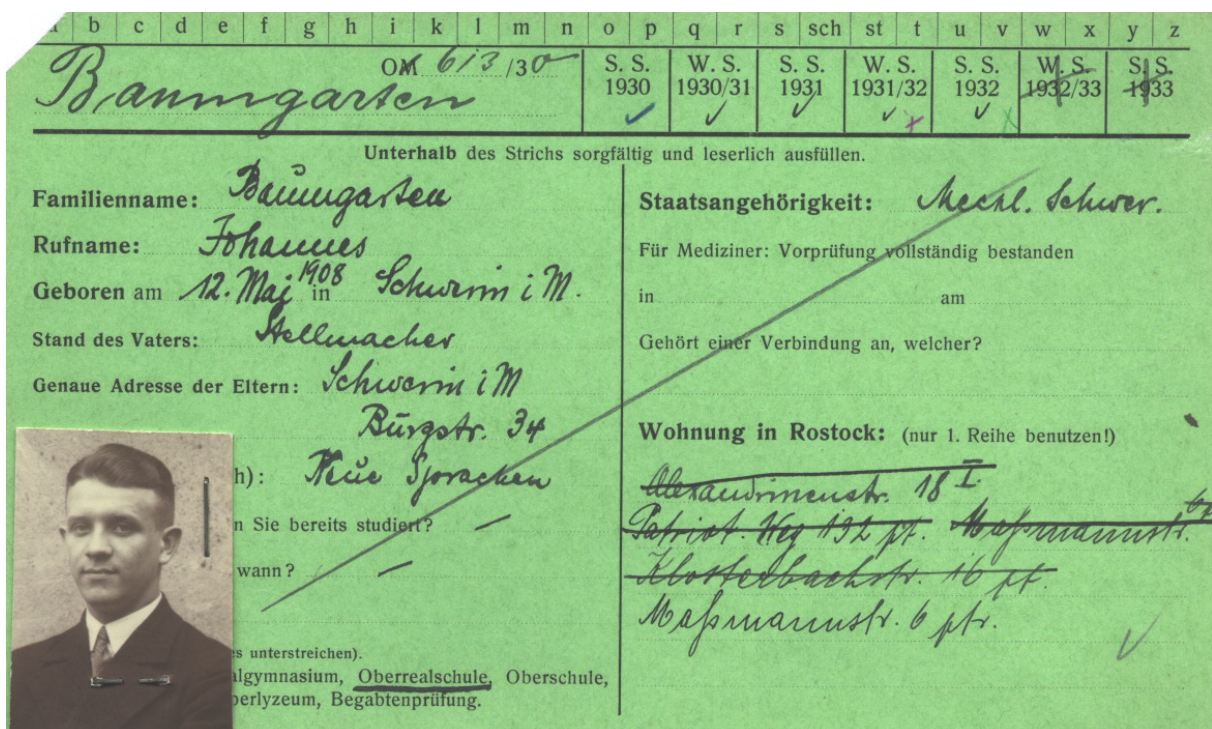 b c d e f g h i k l m n o p q r s sch st t u v w x y z
Baumgarten
OM 613/30
S. S. 1930 W. S. 1930/31 S. S. 1931 W. S. 1931/32 S. S. 1932 W. S. 1932/33 S. S. 1933
Unterhalb des Strichs sorgfältig und leserlich ausfüllen.
Familienname: Baumgarten
Rufname: Johannes
Geboren am 12. Mai 1908 in Schwerin i M.
Stand des Vaters: Stellmacher
Genaue Adresse der Eltern: Schwerin i M
Burgstr. 34
h): Neue Sprachen
n Sie bereits studiert? —
wann? —
es unterstreichen).
algymnasium, Oberrealschule, Oberschule,
berlyzeum, Begabtenprüfung.
Staatsangehörigkeit: Meckl. Schwer.
Für Mediziner: Vorprüfung vollständig bestanden
in am
Gehört einer Verbindung an, welcher?
Wohnung in Rostock: (nur 1. Reihe benutzen!)
Alexandrinenstr. 18 I.
Patriot. Weg 132 pt. Maßmannstr.
Klosterbachstr. 16 pt.
Maßmannstr. 6 ptr.